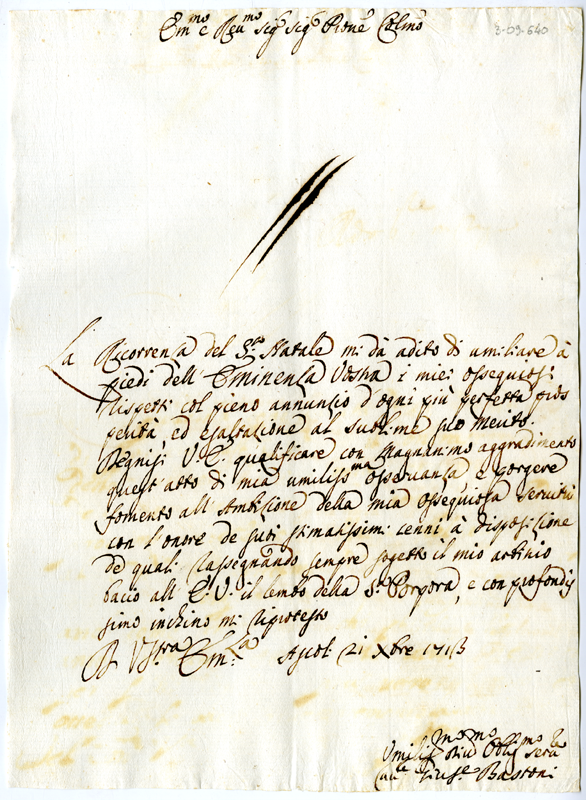 Em.mo e Reu.mo Sig.e Sig.e Prone Colmo
8-09-640
La Ricorrenza del S.to Natale mi dà adito di umiliare à
piedi dell'Eminenza Vostra i miei ossequiosi
rispetti col pieno annuncio d'ogni più perfetta pros
perità, ed esaltazione al sublime suo merito.
Degnisi V.E. qualificare con Magnanimo aggradimento
quest'atto di mia umiliss.ma osservanza e porgere
fomento all'Ambizione della mia ossequiosa servitù
con l'onore de suoi stimatissimi cenni, à disposizione
de quali rassegnando sempre sogetto il mio arbitrio
bacio all'E.V. il lembo della S. Porpora, e con profondis
simo inchino mi riprotesto
D V.stra Em.za Ascoli 21 Xbre 1713
Umiliss.mo Obblig.mo
Bastoni